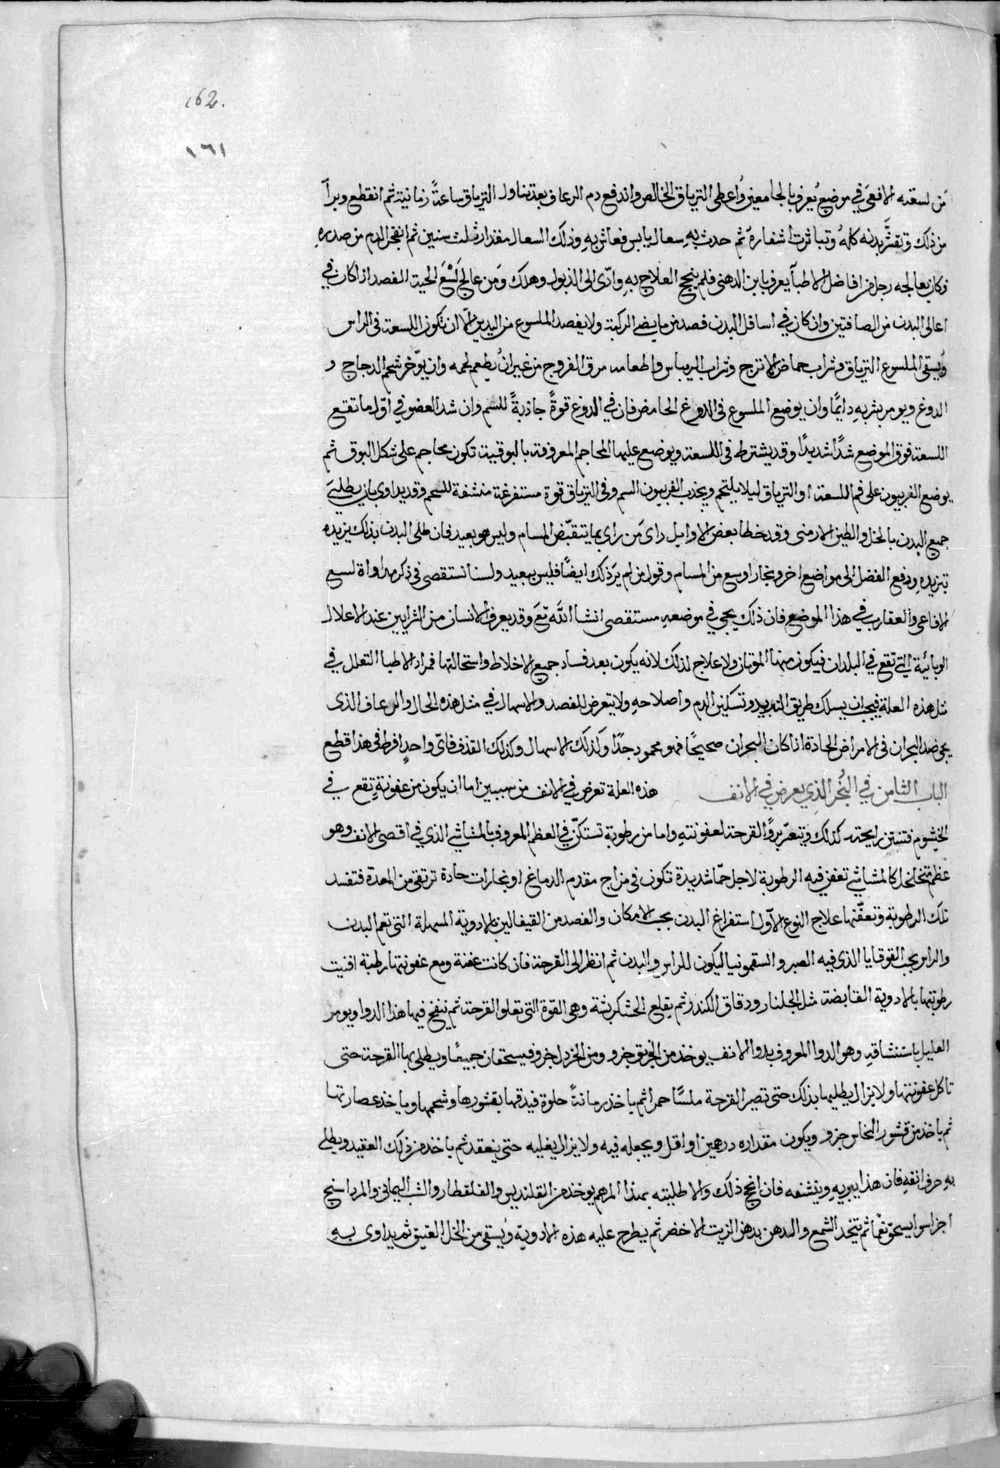 162.
١٦١
من لسعته الافعى في موضع يعرف بالجامعين واعطى الترياق الخالص واندفع دم الرعاف بعد تناول الترياق ساعةً زمانية ثم انقطع وبرأ
من ذلك وتقشّر بدنه كله وتناثرت اشفاره ثم حدث به سعال يابس فعاش به وذلك السعال مقدار ثلث سنين ثم انفجر الدم من صدره
وكان يعالجه رجل من افاضل الاطبآ يعرف بابن الدهنى فلم ينجح العلاج به وادّى الى الذبول وهلك ومن عالج لسْعَ الحية الفصد اذا كان في
اعالى البدن من الصافنين وان كان في اسافل البدن فصد من مابض الركبة ولا يفصد الملسوع من اليدين الا ان تكون اللسعة في الراس
ويُسقى الملسوع الترياق وشراب حماض الاترج وشراب الريباس والطعامه مرق الفروج من غير ان يُطعم لحمه وان يوخر شحم الدجاج و
الدوغ ويومر بشربه دايمًا وان يوضع الملسوع فى الدوغ الحامض فان في الدوغ قوةً جاذبةً للسم وان شد العضو في اول ما تقع
اللسعة فوق الموضع شدًا شديدًا وقد يشترط فى اللسعة ويوضع عليها المحاجم المعروفة بالبوقية تكون محاجم على شكل البوق ثم
يوضع الفربيون على فم اللسعة او الترياق ليلا يلتحم ويجذب الفربيون السم وفى الترياق قوة مستفرغة منشفة للسم وقد يداوى بان يطلى
جميع البدن بالخل والطين الارمنى وقد خطا بعض الاوايل راى من راى بما تتقبّض المسام وليس هو بعيد فان طلى البدن بذلك يزيده
تبريده ودفع الفضل الى مواضع اخر ومجار اوسع من المسام وقول من لم ير ذلك ايضًا فليس ببعيد ولسنا نستقصى فى ذكر مداواة لسع
الافاعى والعقارب في هذا الموضع فان ذلك يجى في موضعه مستقصى انشا الله تع وقد يعرف الانسان من الشرايين عند الاعلال
الوبائية التي تقع في البلدان فيكون منها الموتان ولا علاج لذلك لانه يكون بعد فساد جميع الاخلاط واستحالتها فمراد الاطبا التعلل في
مثل هذه العلة فيجب ان يسلك طريق التبريد وتسكين الدم واصلاحه ولا يتعرض للفصد والاسهال في مثل هذه الحال والرعاف الذى
يجى ضد البحران فى الامراض الحادة اذا كان البحران صحيحًا فهو محمود جدًا وكذلك الاسهال وكذلك القذف فاىّ واحدٍ افرط في هذا قطع
الباب الثامن في البُخر الذي يعرض في الانف هذه العلة تعرض في الانف من سببين اما ان يكون من عفونةٍ تقع في
الخيشوم فتنتن رايحته كذلك القرحة لعفونتهٍ واما من رطوبة تستكنّ في العظم المعروف بالمشاشي الذي في اقصى الانف وهو
عظم متخلخل كالمشاشي تعفن فيه الرطوبة لاجل حمّا شديدة تكون في مزاج مقدم الدماغ او بخارات حادة ترتقى من المعدة فتفسد
تلك الرطوبة وتعفّنها علاج النوع الاول استفراغ البدن بحسب الامكان والفصد من القيفال بالادوية المسهلة التى تعم البدن
والراس بحب القوقايا الذى فيه الصبر والسقمونيا ليكون للراس والبدن ثم انظر الى القرحة فان كانت عفنة ومع عفونتها رطبة افنيت
رطوبتها بالادوية القابضة مثل الجلنار ودقاق الكندر ثم يقلع الخشكريشة وهى القوة التى تعلو القرحة ثم ينفخ فيها هذا الدوا ويومر
العليل باستنشاقه وهو الدوا المعروف بدوا الانف يوخذ من الخربق جزو ومن الخردل جزو فيسحقان جميعًا ويطلى بها القرحة حتى
تاكل عفونتها ولا يزال يطليها بذلك حتى تصير القرحة ملسًا حمرا ثم ياخذ رمانةً حلوة فيدقها بقشورها وشحمها وياخذ عصارتها
ثم ياخذ من قشور النحاس جزو ويكون مقداره درهمين او اقل ويجعله فيه ولا يزال يغليه حتى ينعقد ثم ياخذ من ذلك العقيد ويطلى
به حرف انفه فان هذا يبريه وينشفه فان انجح ذلك والا طليته بهذا المرهم يوخذ من القلنديس والقلقطار والشب اليمانى والمرداسنج
اجزا سوا يسحق نعمًا ثم يتخذ الشمع والدهن بدهن الزيت الاخضر ثم يطرح عليه هذه الادوية ويُسقى من الخل العتيق ثم يداوى به